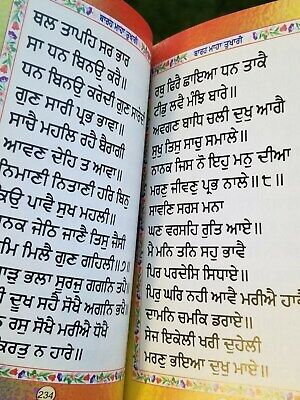 ਬਾਰਹ ਮਾਹਾ ਤੁਖਾਰੀ
ਥਲ ਤਾਪਹਿ ਸਰ ਭਾਰ
ਸਾ ਧਨ ਬਿਨਉ ਕਰੈ॥
ਧਨ ਬਿਨਉ ਕਰੇਦੀ ਗੁਣ ਸਾਰੇਦੀ
ਗੁਣ ਸਾਰੀ ਪ੍ਰਭ ਭਾਵਾ॥
ਸਾਚੈ ਮਹਲਿ ਰਹੈ ਬੈਰਾਗੀ
ਆਵਣ ਦੇਹਿ ਤ ਆਵਾ॥
ਨਿਮਾਣੀ ਨਿਤਾਣੀ ਹਰਿ ਬਿਨੁ
ਕਿਉ ਪਾਵੈ ਸੁਖ ਮਹਲੀ॥
ਨਾਨਕ ਜੇਠਿ ਜਾਣੈ ਤਿਸੁ ਜੈਸੀ
ਮਿ ਮਿਲੈ ਗੁਣ ਗਹਿਲੀ॥੭॥
ਭਲਾ ਸੂਰਜੁ ਗਗਨਿ ਤਪੈ॥
ਦੂਖ ਸਹੈ ਸੋਖੈ ਅਗਨਿ ਭਖੈ॥
ਰਸੁ ਸੋਖੈ ਮਰੀਐ ਧੋਖੈ
ਕਿਰਤੁ ਨ ਹਾਰੇ॥
234
ਬਾਰਹ ਮਾਹਾ ਤੁਖਾਰੀ
ਰਥੁ ਫਿਰੈ ਛਾਇਆ ਧਨ ਤਾਕੈ
ਟੀਡੁ ਲਵੈ ਮੰਝਿ ਬਾਰੇ॥
ਅਵਗਣ ਬਾਧਿ ਚਲੀ ਦੁਖੁ ਆਗੈ
ਸੁਖੁ ਤਿਸੁ ਸਾਚੁ ਸਮਾਲੇ॥
ਨਾਨਕ ਜਿਸ ਨੋ ਇਹੁ ਮਨੁ ਦੀਆ
ਮਰਣੁ ਜੀਵਣੁ ਪ੍ਰਭ ਨਾਲੇ॥੮॥
ਸਾਵਣਿ ਸਰਸ ਮਨਾ
ਘਣ ਵਰਸਹਿ ਰੁਤਿ ਆਏ॥
ਮੈ ਮਨਿ ਤਨਿ ਸਹੁ ਭਾਵੈ
ਪਿਰ ਪਰਦੇਸਿ ਸਿਧਾਏ॥
ਪਿਰੁ ਘਰਿ ਨਹੀ ਆਵੈ ਮਰੀਐ ਹਾਵੈ
ਦਾਮਨਿ ਚਮਕਿ ਡਰਾਏ॥
ਸੇਜ ਇਕੇਲੀ ਖਰੀ ਦੁਹੇਲੀ
ਮਰਣੁ ਭਇਆ ਦੁਖੁ ਮਾਏ॥